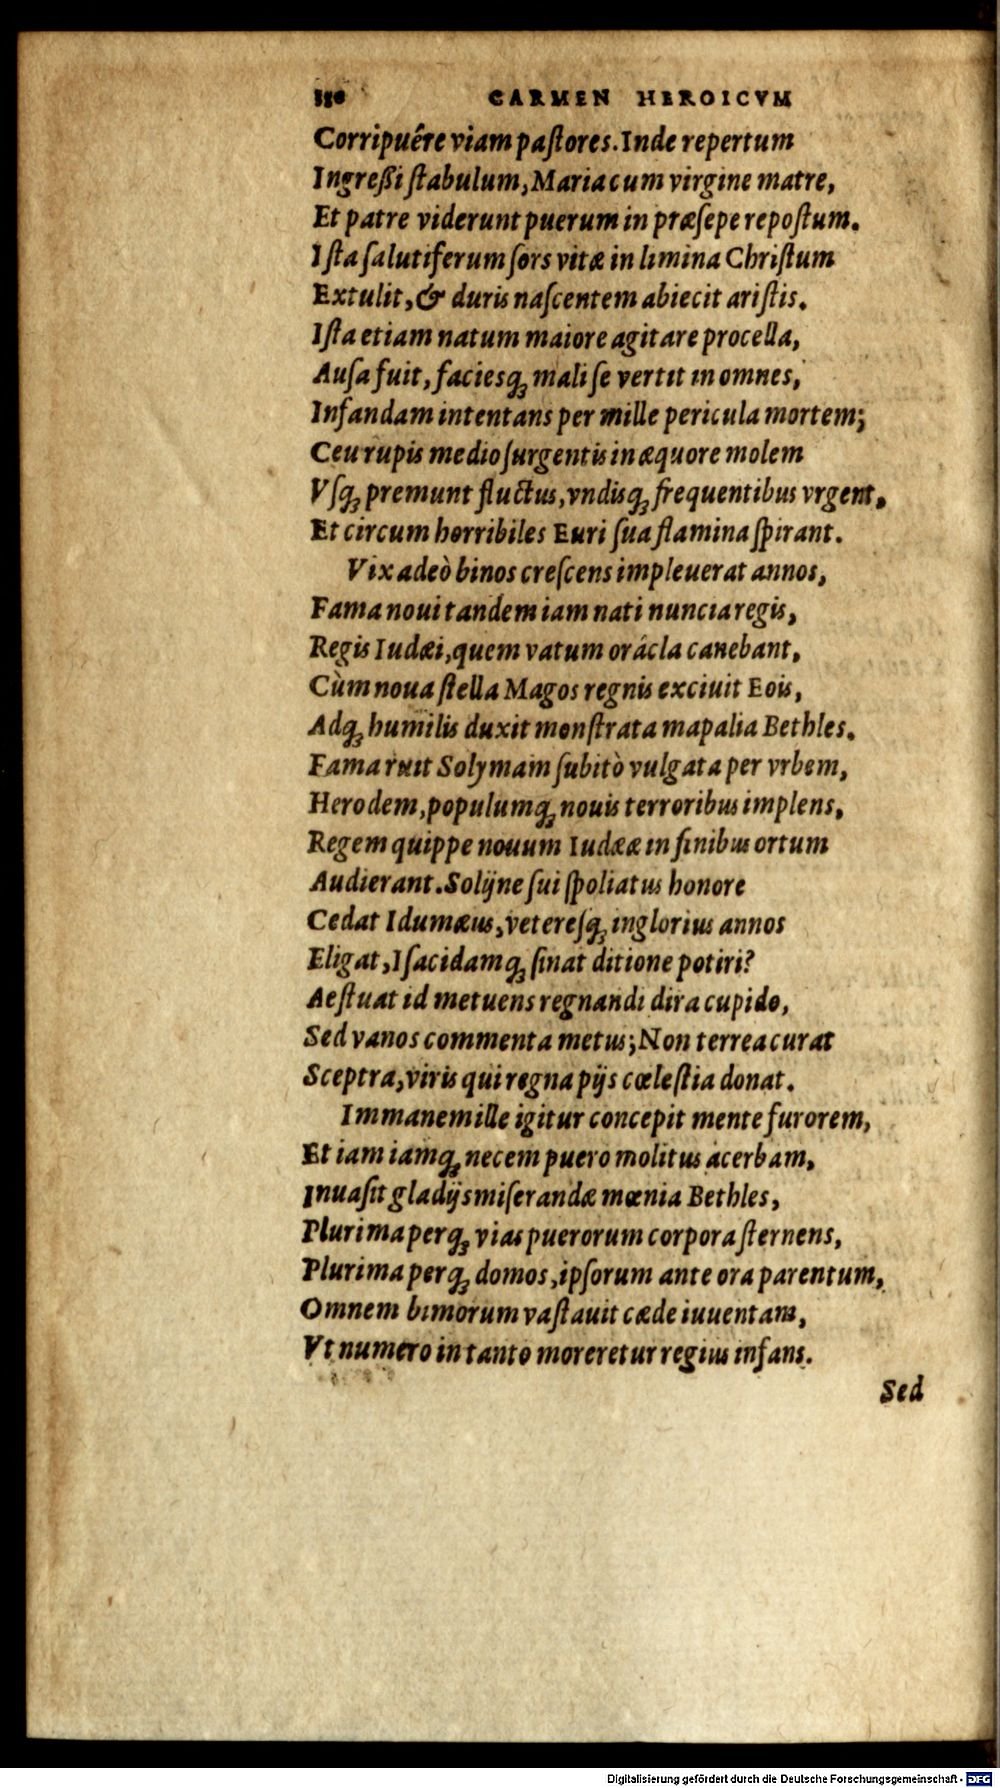 110 CARMEN HEROICVM
Corripuêre viam paſtores. Inde repertum
Ingreßi ſtabulum, Maria cum virgine matre,
Et patre viderunt puerum in præſepe repoſtum.
Iſta ſalutiferum ſors vitæ in limina Chriſtum
Extulit, & duris naſcentem abiecit ariſtis.
Iſta etiam natum maiore agitare procella,
Auſa fuit, faciesq́; mali ſe vertit in omnes,
Infandam intentans per mille pericula mortem;
Ceu rupis medio ſurgentis in æquore molem
Vſq; premunt fluctus, vndisq́; frequentibus vrgent,
Et circum horribiles Euri ſua flamina ſpirant.
Vix adeò binos creſcens impleuerat annos,
Fama noui tandem iam nati nuncia regis,
Regis Iudæi, quem vatum orácla canebant,
Cùm noua ſtella Magos regnis exciuit Eois,
Adq́; humilis duxit monſtrata mapalia Bethles.
Fama ruit Solymam ſubitò vulgata per vrbem,
Herodem, populumq́; nouis terroribus implens,
Regem quippe nouum Iudææ in finibus ortum
Audierant. Solijne ſui ſpoliatus honore
Cedat Idumæus, vetereſq́; inglorius annos
Eligat, Iſacidamq́; ſinat ditione potiri?
Aeſtuat id metuens regnandi dira cupido,
Sed vanos commenta metus; Non terrea curat
Sceptra, viris qui regna pijs cœleſtia donat.
Immane mille igitur concepit mente furorem,
Et iam iamq́; necem puero molitus acerbam,
Inuaſit gladijs miſerandæ mœnia Bethles,
Plurima perq́; vias puerorum corpora ſternens,
Plurima perq́; domos, ipſorum ante ora parentum,
Omnem bimorum vaſtauit cæde iuuentam,
Vt numero in tanto moreretur regius infans.
Sed
Digitalisierung gefördert durch die Deutsche Forschungsgemeinschaft - DFG